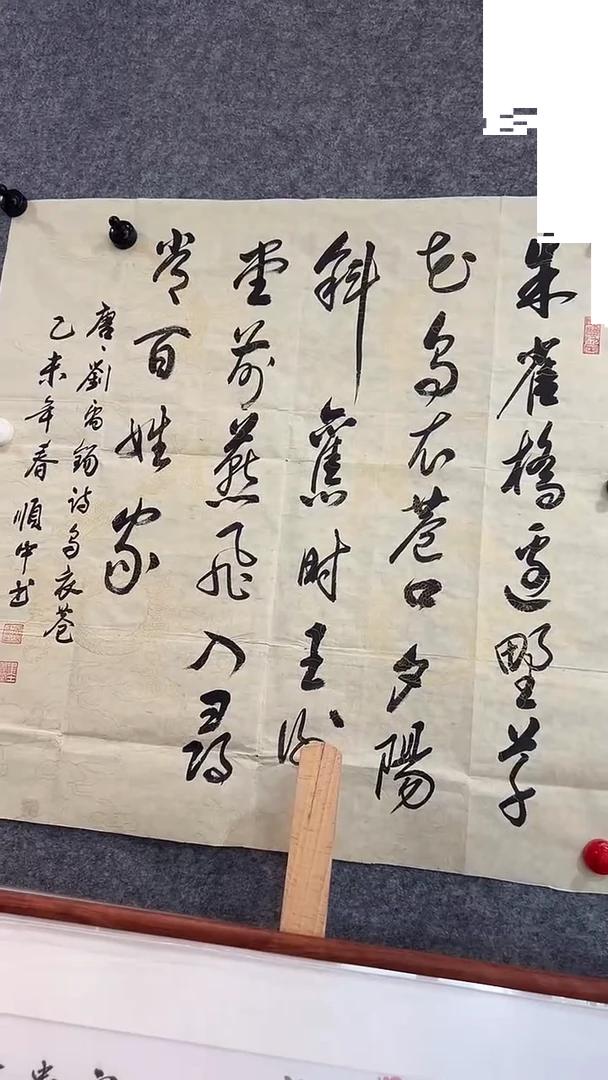 朱雀橋邊野草
花烏衣巷口夕陽
斜舊时王谢
堂前燕飛入尋
常百姓家
唐、劉禹錫诗烏衣巷
乙未年春順中书